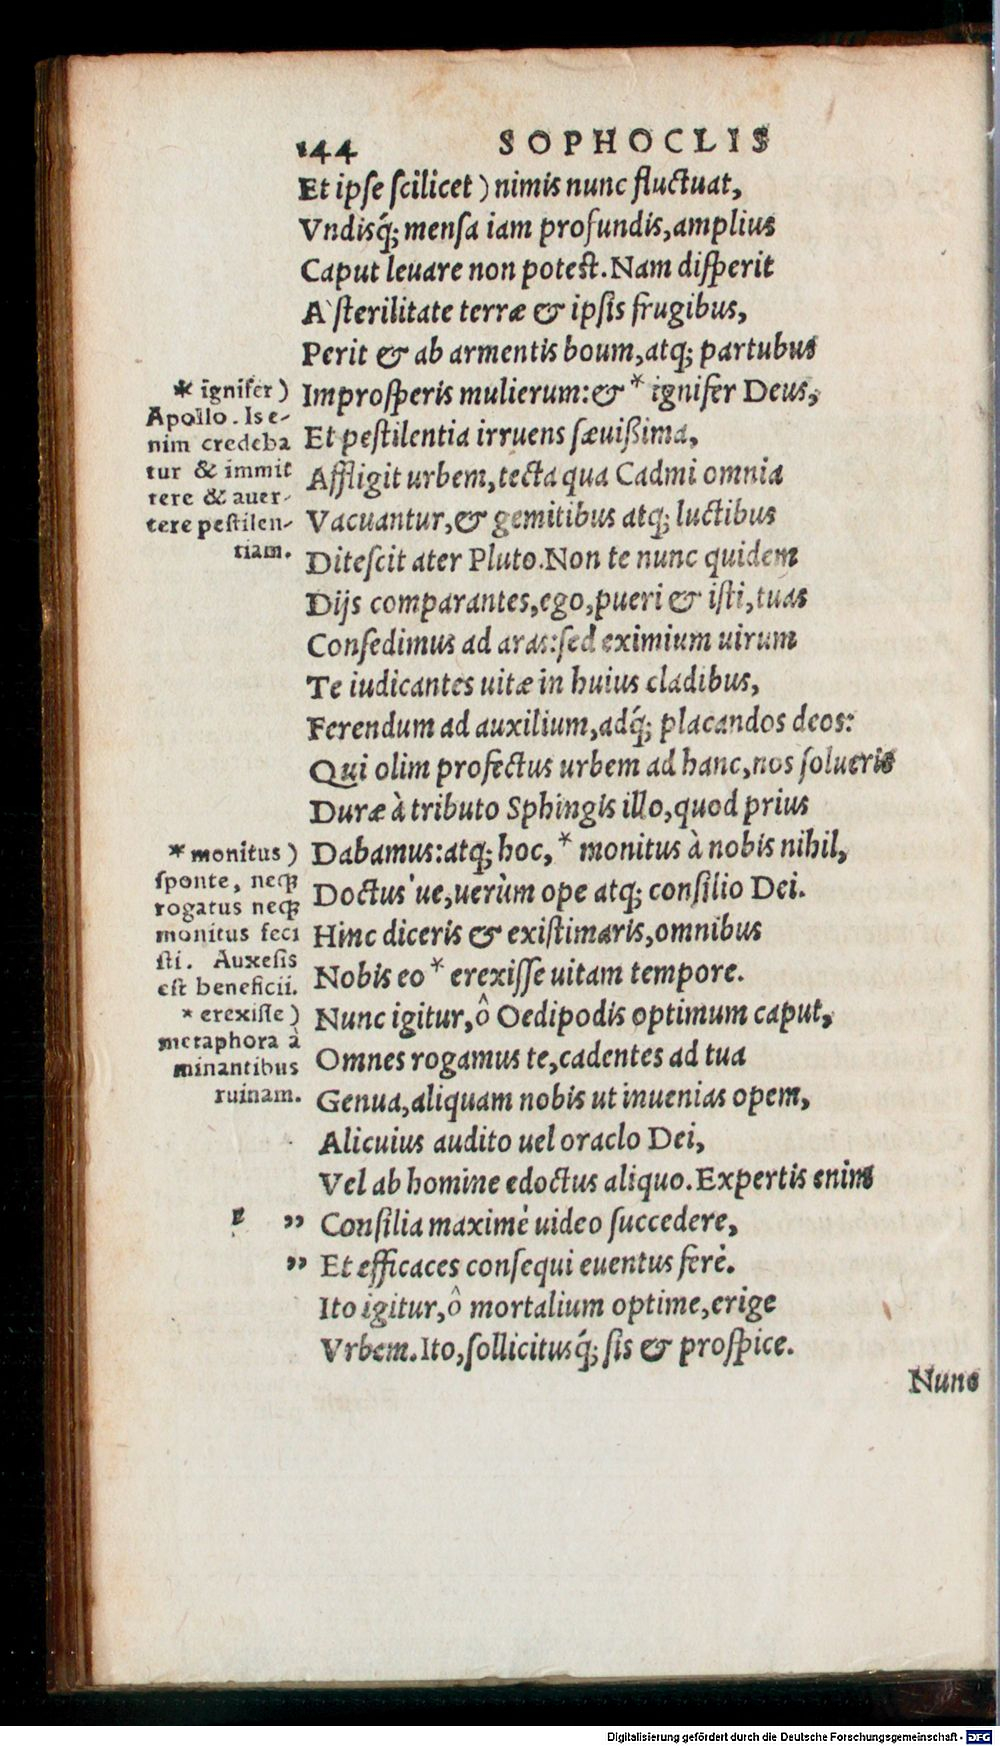 144 SOPHOCLIS
Et ipſe ſcilicet) nimis nunc fluctuat,
Vndisq́; mensa iam profundis, amplius
Caput leuare non poteſt. Nam diſperit
A` ſterilitate terræ & ipſis frugibus,
Perit & ab armentis boum, atq; partubus
Improſperis mulierum: & * ignifer Deus,
Et peſtilentia irruens ſæuißima,
Affligit urbem, tecta qua Cadmi omnia
Vacuantur, & gemitibus atq; luctibus
Diteſcit ater Pluto. Non te nunc quidem
Dijs comparantes, ego, pueri & iſti, tuas
Conſedimus ad aras: ſed eximium uirum
Te iudicantes uitæ in huius cladibus,
Ferendum ad auxilium, adq́; placandos deos:
Qui olim profectus urbem ad hanc, nos ſolueris
Duræ à tributo Sphingis illo, quod prius
Dabamus: atq; hoc, * monitus à nobis nihil,
Doctus'ue, uerùm ope atq; conſilio Dei.
Hinc diceris & exiſtimaris, omnibus
Nobis eo * erexiſſe uitam tempore.
Nunc igitur, ô Oedipodis optimum caput,
Omnes rogamus te, cadentes ad tua
Genua, aliquam nobis ut inuenias opem,
Alicuius audito uel oraclo Dei,
Vel ab homine edoctus aliquo. Expertis enim
„ Conſilia maximè uideo ſuccedere,
„ Et efficaces conſequi euentus ferè.
Ito igitur, ô mortalium optime, erige
Vrbem. Ito, ſollicitusq́; ſis & proſpice.
Nunc
* ignifer)
Apollo. Is e-
nim credeba
tur & immit
tere & auer-
tere peſtilen-
tiam.
* monitus)
ſponte, neq;
rogatus neq;
monitus feci
ſti. Auxeſis
eſt beneficii.
* erexiſſe)
metaphora à
minantibus
ruinam.
Digitalisierung gefördert durch die Deutsche Forschungsgemeinschaft - DFG